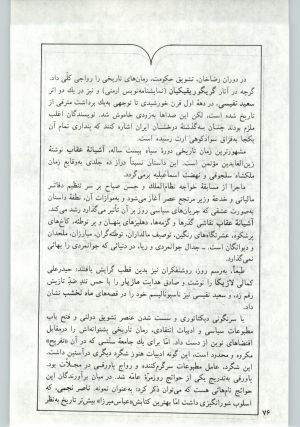 در دوران رضاخان، تشویق حکومت، رمان‌های تاریخی را رواجی کلی داد.
گرچه در آثار گریگور یقیکیان (نمایشنامه‌نویس ارمنی) و نیز در یك دو اثر
سعید نفیسی، در دههٔ اول قرن خورشیدی تا توجهی به‌یك برداشت مترقی از
تاریخ شده است، لکن این صداها به‌زودی خاموش شد. نویسندگان اغلب
ملزم بودند چنان به‌گذشتهٔ درخشان ایران اشاره کنند که بنداری تمام آن
یکجا به‌فراق سوادکوهی ارث رسیده است.
مشهورترین رمان تاریخی دورهٔ سیاه بیست ساله، آشیانهٔ عقاب نوشتهٔ
زین‌العابدین مؤتمن است. این داستان نسبتاً دراز ده جلدی به‌وقایع زمان
ملکشاه سلجوقی و نهضت اسماعیلیه برمی‌گردد.
ماجرا از مسابقهٔ خواجه نظام‌الملك و حسن صباح بر سر تنظیم دفاتر
مالیاتی و خدعهٔ وزیر مرتجع عصر آغاز می‌شود و به‌موازات آن، نطفهٔ داستان
به‌صورت عشقی که جریان‌های سیاسی روز بر آن تأثیر می‌گذارد رشد می‌کند.
آشیانهٔ عقاب نقاشی گذرها و گزمه‌ها، دهلیزهای پنهان و پر توطئه، کاخ‌های
پرشکوه، عشرتگاه‌های رنگین، توصیف مالداران، توطئه‌گران، مبارزان، ملحدان
و دیوانگان است. ــ جدال جوانمردی و ریا، در دنیائی که جوانمردی را بهائی
نیست.
طبعاً، به‌رسم روز، روشنفکران نیز بدین قطب گرایش یافتند: حیدرعلی
کمالی لازیکا را نوشت و صادق هدایت مازیار را با حس تند ضد تازیش
رقم زد، و سعید نفیسی نیز ناسیونالیسم خود را در قصه‌های ماه نخشب نشان
داد.
با سرنگونی دیکتاتوری و سست شدن عنصر تشویق دولتی و فتح باب
مطبوعات سیاسی و ادبیات انتقادی، رمان تاریخی پشتوانه‌اش را درمقابل
اقتضاهای نوین از دست داد. اما برای یك جامعهٔ سلسی که در آن «تفریح»
مکروه و محدود است، این گونه ادبیات هنوز شگرد دیگری درآستین داشت.
این شگرد، عامل مطبوعات سرگرم‌کننده و رواج پاورقی در مجلات بود.
پاورقی به‌تدریج یکی از حوائج روزمرهٔ عامه شد. در میان برآورندگان این
حوائج نام‌هائی هست که می‌توان ذکر کرد: به‌عنوان نمونه، ناصر نجمی، که
اسلوب شورانگیزی داشت امّا بهترین کتابش«عباس‌میرزا» بیش‌تر تاریخ به‌نظر
۷۶